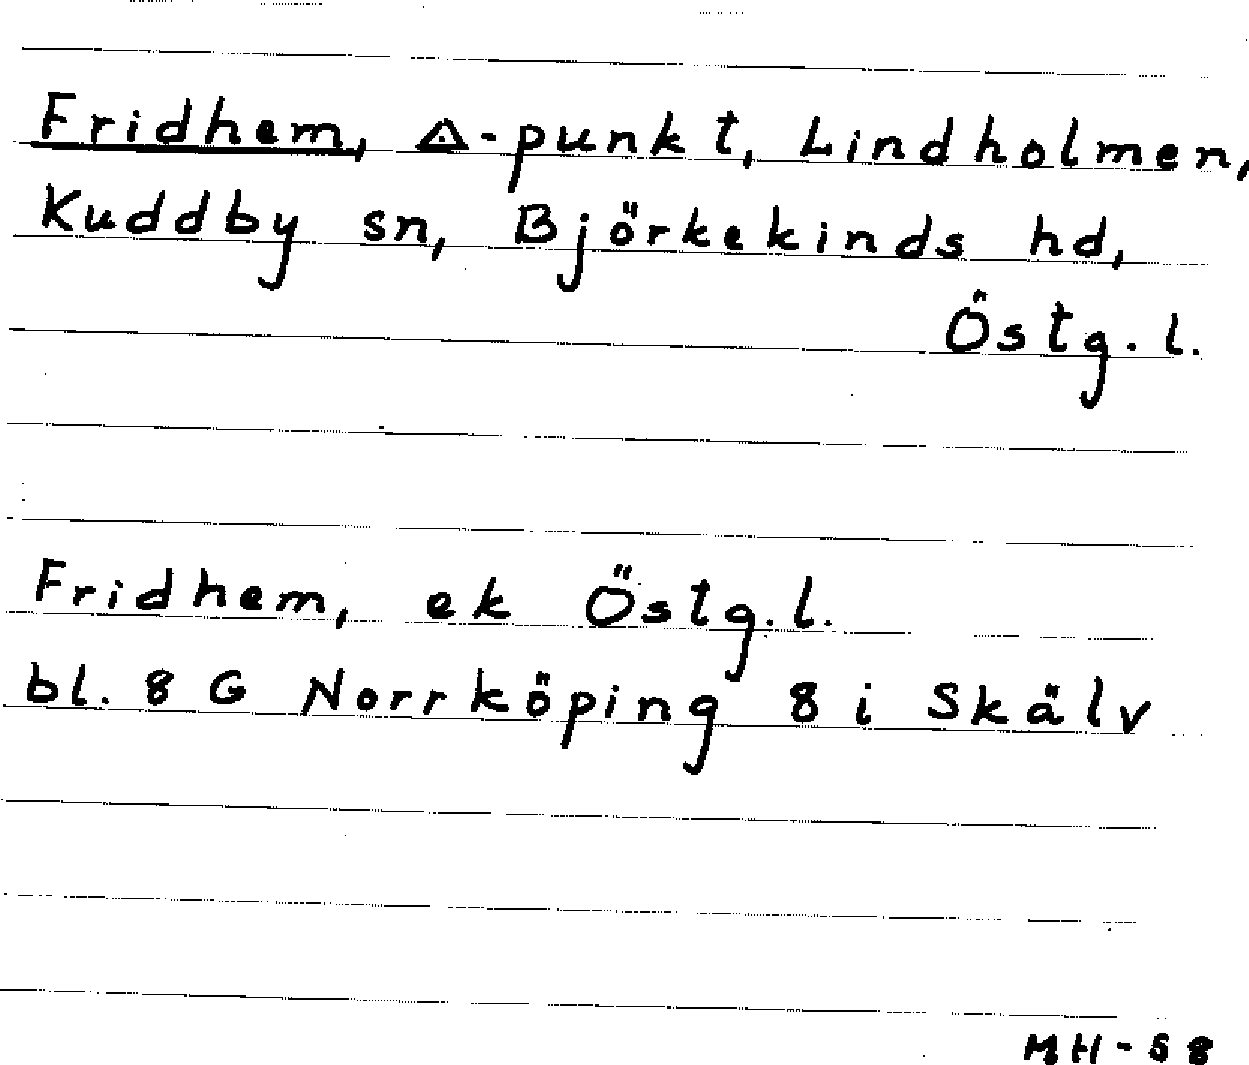 Fridhem, ⟁-punkt, Lindholmen,
Kuddby sn, Björkekinds hd,
Östg.l.
Fridhem, ek Östg.l.
bl. 8 G Norrköping 8 i Skälv
MH-58